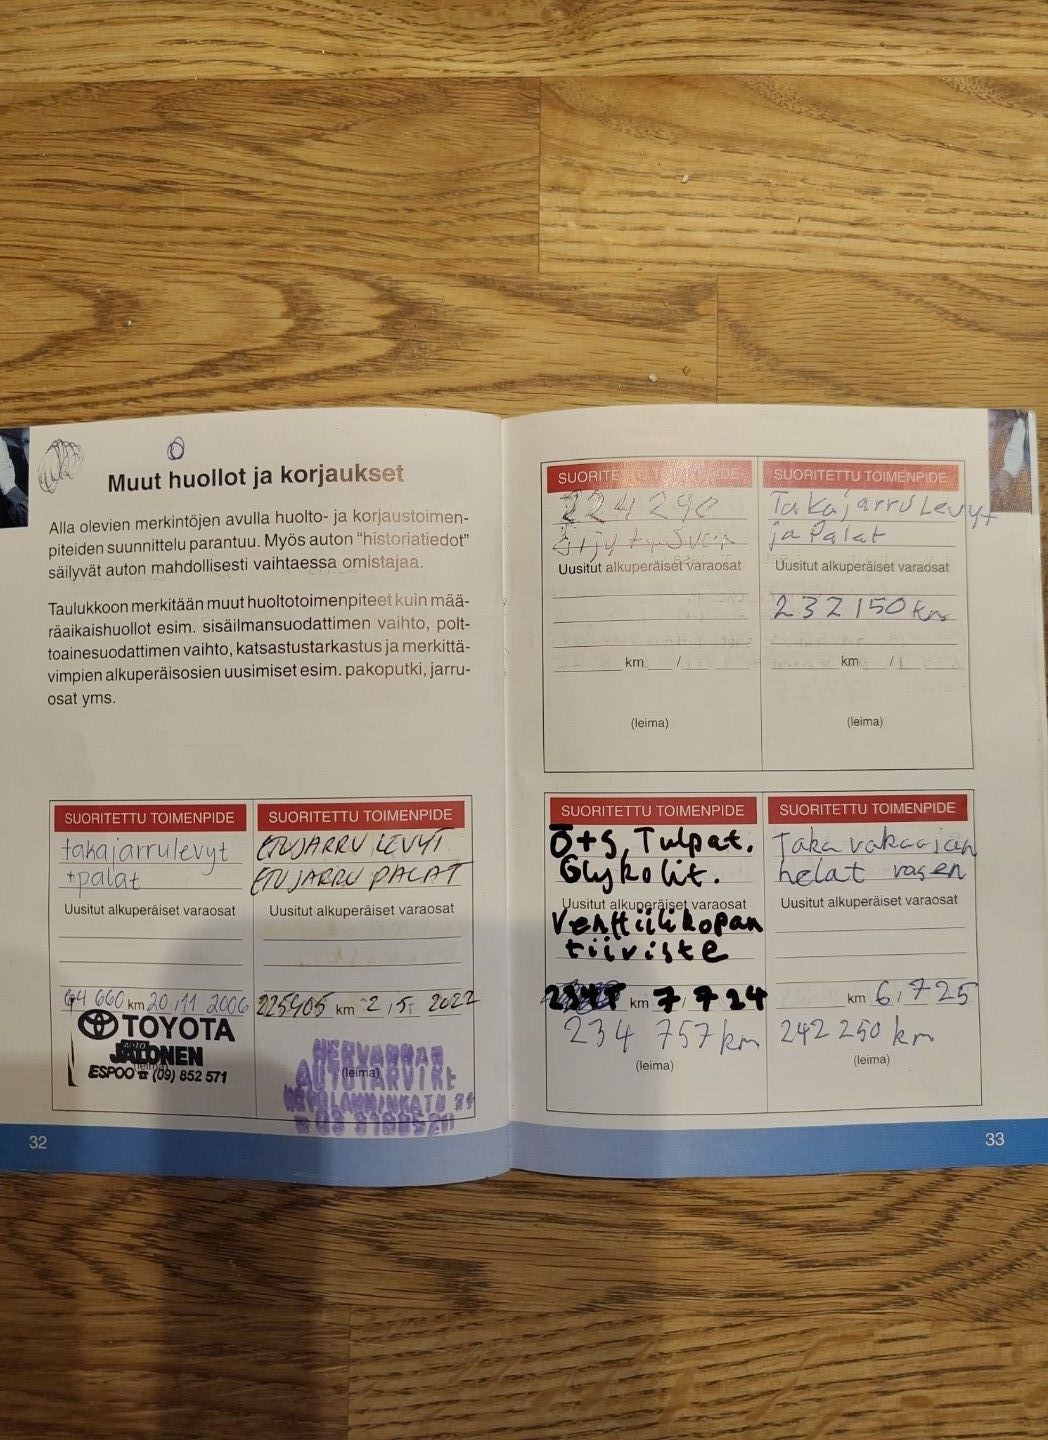 Muut huollot ja korjaukset
Alla olevien merkintöjen avulla huolto- ja korjaustoimen-
piteiden suunnittelu parantuu. Myös auton "historiatiedot"
säilyvät auton mahdollisesti vaihtaessa omistajaa.
Taulukkoon merkitään muut huoltotoimenpiteet kuin mää-
räaikaishuollot esim. sisäilmansuodattimen vaihto, polt-
toainesuodattimen vaihto, katsastustarkastus ja merkittä-
vimpien alkuperäisosien uusimiset esim. pakoputki, jarru-
osat yms.
SUORITETTU TOIMENPIDE
takajarrulevyt
+palat
Uusitut alkuperäiset varaosat
km 20/11 2006
TOYOTA
AUTO
JALONEN
(leima)
ESPOO ☎ (09) 852 571
SUORITETTU TOIMENPIDE
ETUJARRU LEVYT
ETUJARRU PALAT
Uusitut alkuperäiset varaosat
225405 km 2/5 2022
HERVANNAN
AUTOTARVIKE
(leima)
32
SUORITETTU TOIMENPIDE
Uusitut alkuperäiset varaosat
km /
(leima)
SUORITETTU TOIMENPIDE
Takajarrulevyt
ja Palat
Uusitut alkuperäiset varaosat
232150 km
km /
(leima)
SUORITETTU TOIMENPIDE
Ö+S, Tulpat.
Glykolit.
Uusitut alkuperäiset varaosat
Venttiilikopan
tiiviste
km 7/7 24
234 757 km
(leima)
SUORITETTU TOIMENPIDE
Taka vakaajan
helat vasen
Uusitut alkuperäiset varaosat
km 6/725
242 250 km
(leima)
33